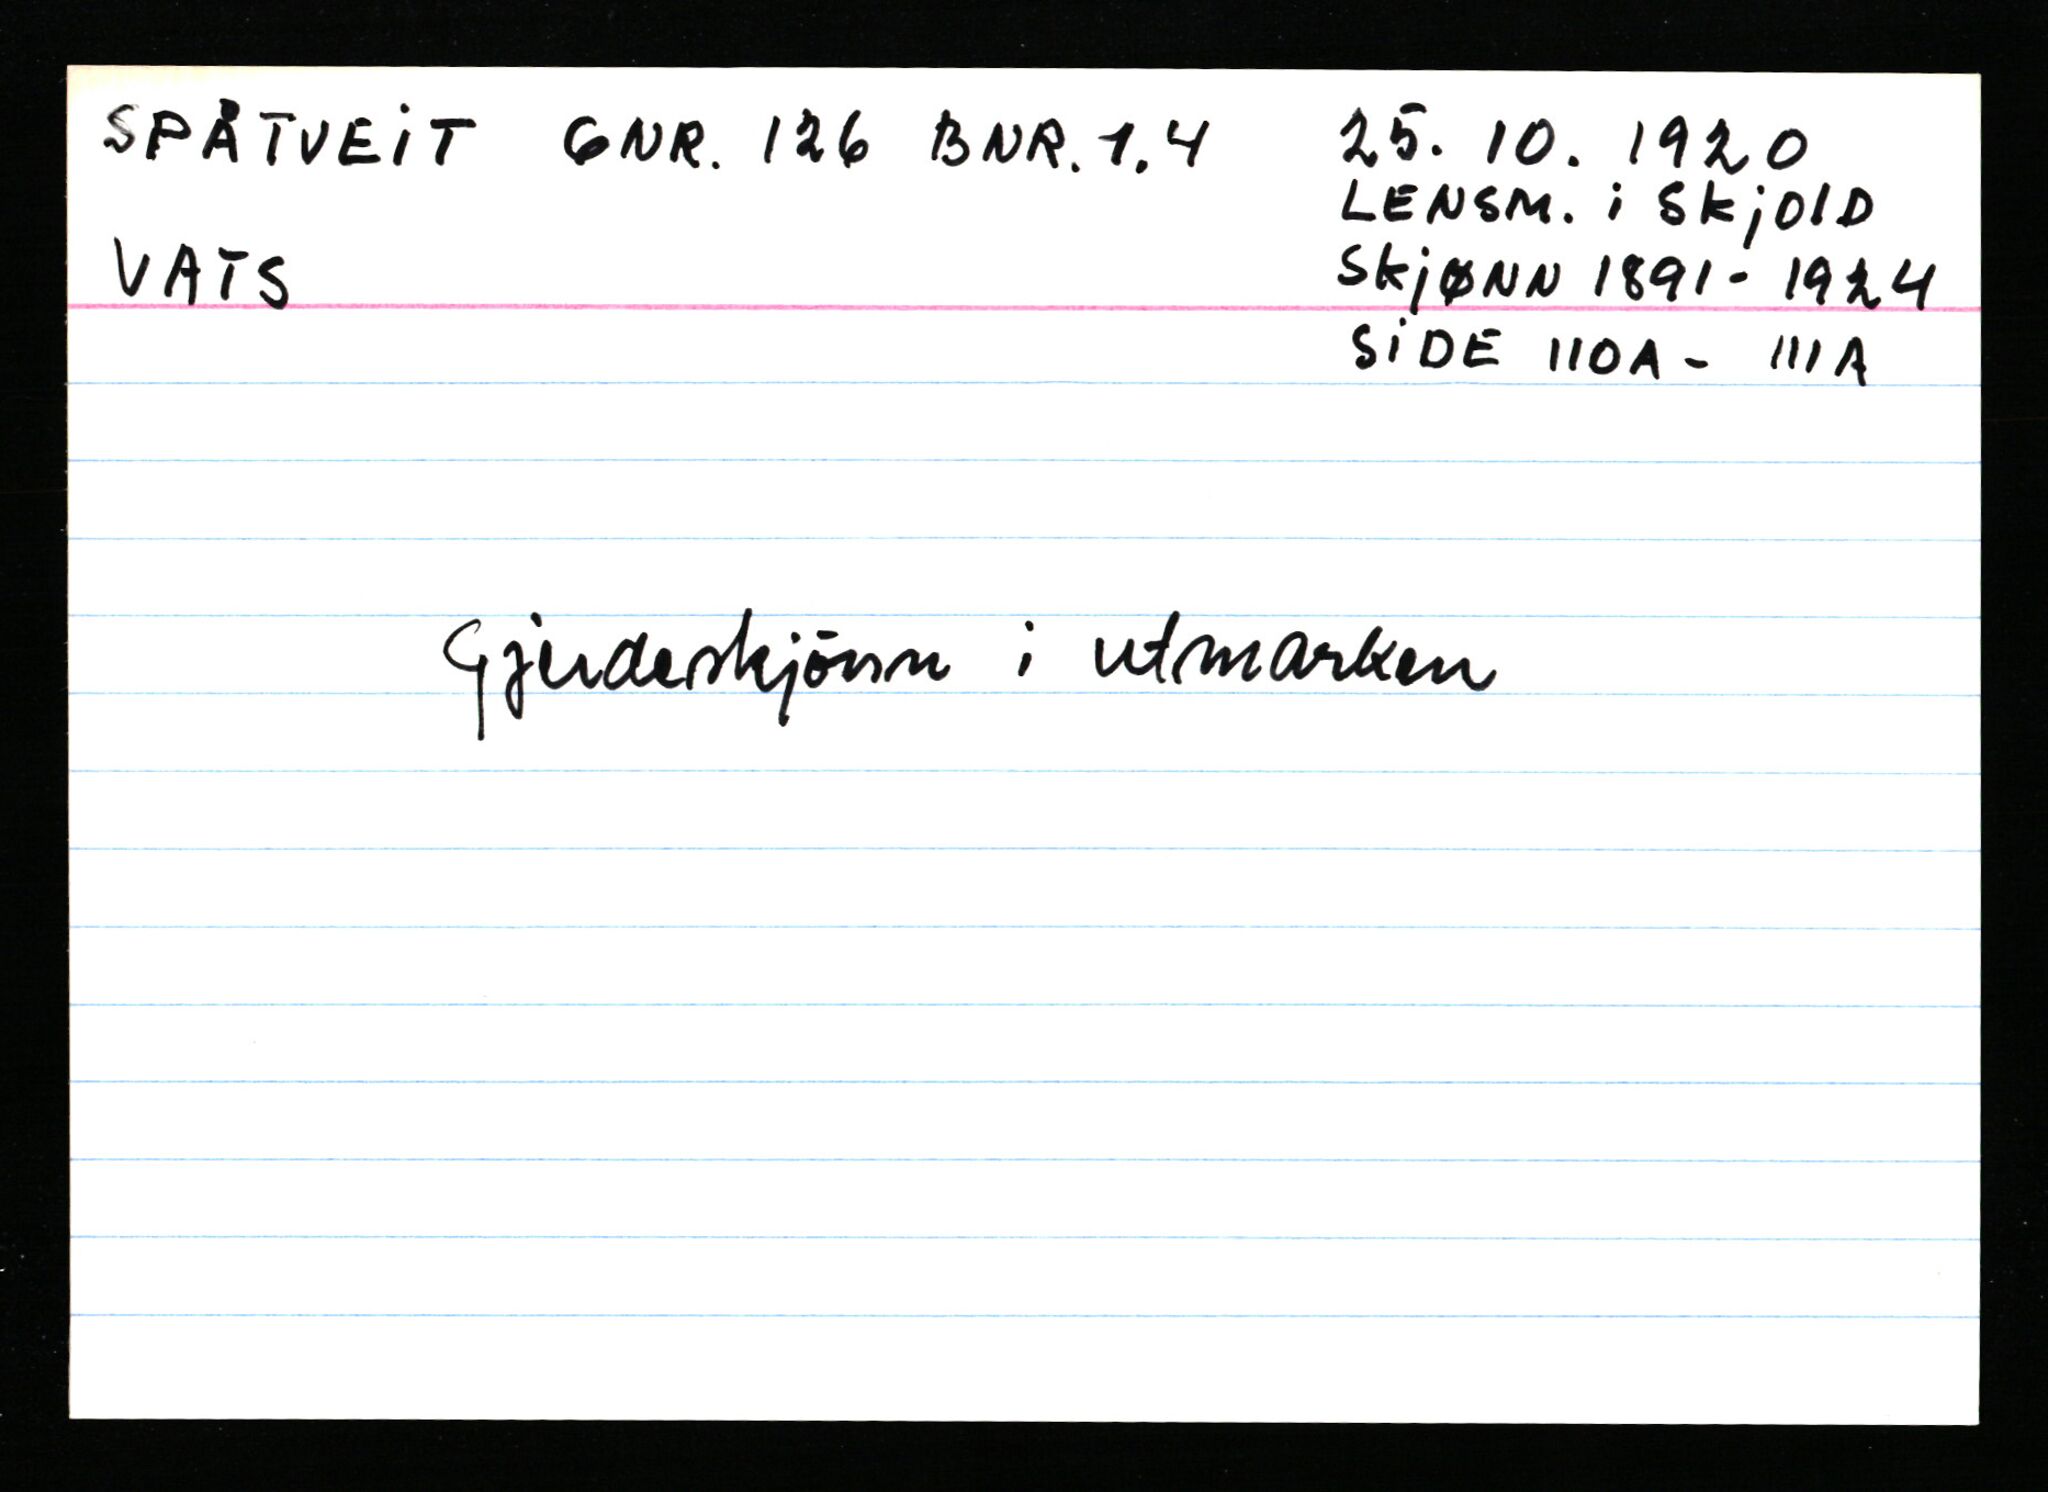 SPÅTVEIT GNR. 126 BNR. 1.4 25. 10. 1920
LENSM. i SKjOlD
VATS SKjØNN 1891 - 1924
SiDE 110A - 111A
Gjerdeskjönn i utmarken